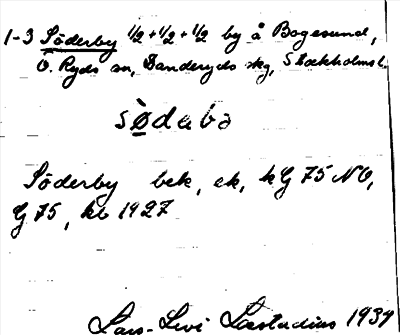 1-3 Söderby 1/2+1/2+1/2 by å Bogesund,
Ö. Ryds sn, Danderyds skg, Stockholms l.
södəbə
Söderby bek, ek, kG 75 NO,
G 75, kb 1927
Lars-Levi Læstadius 1934